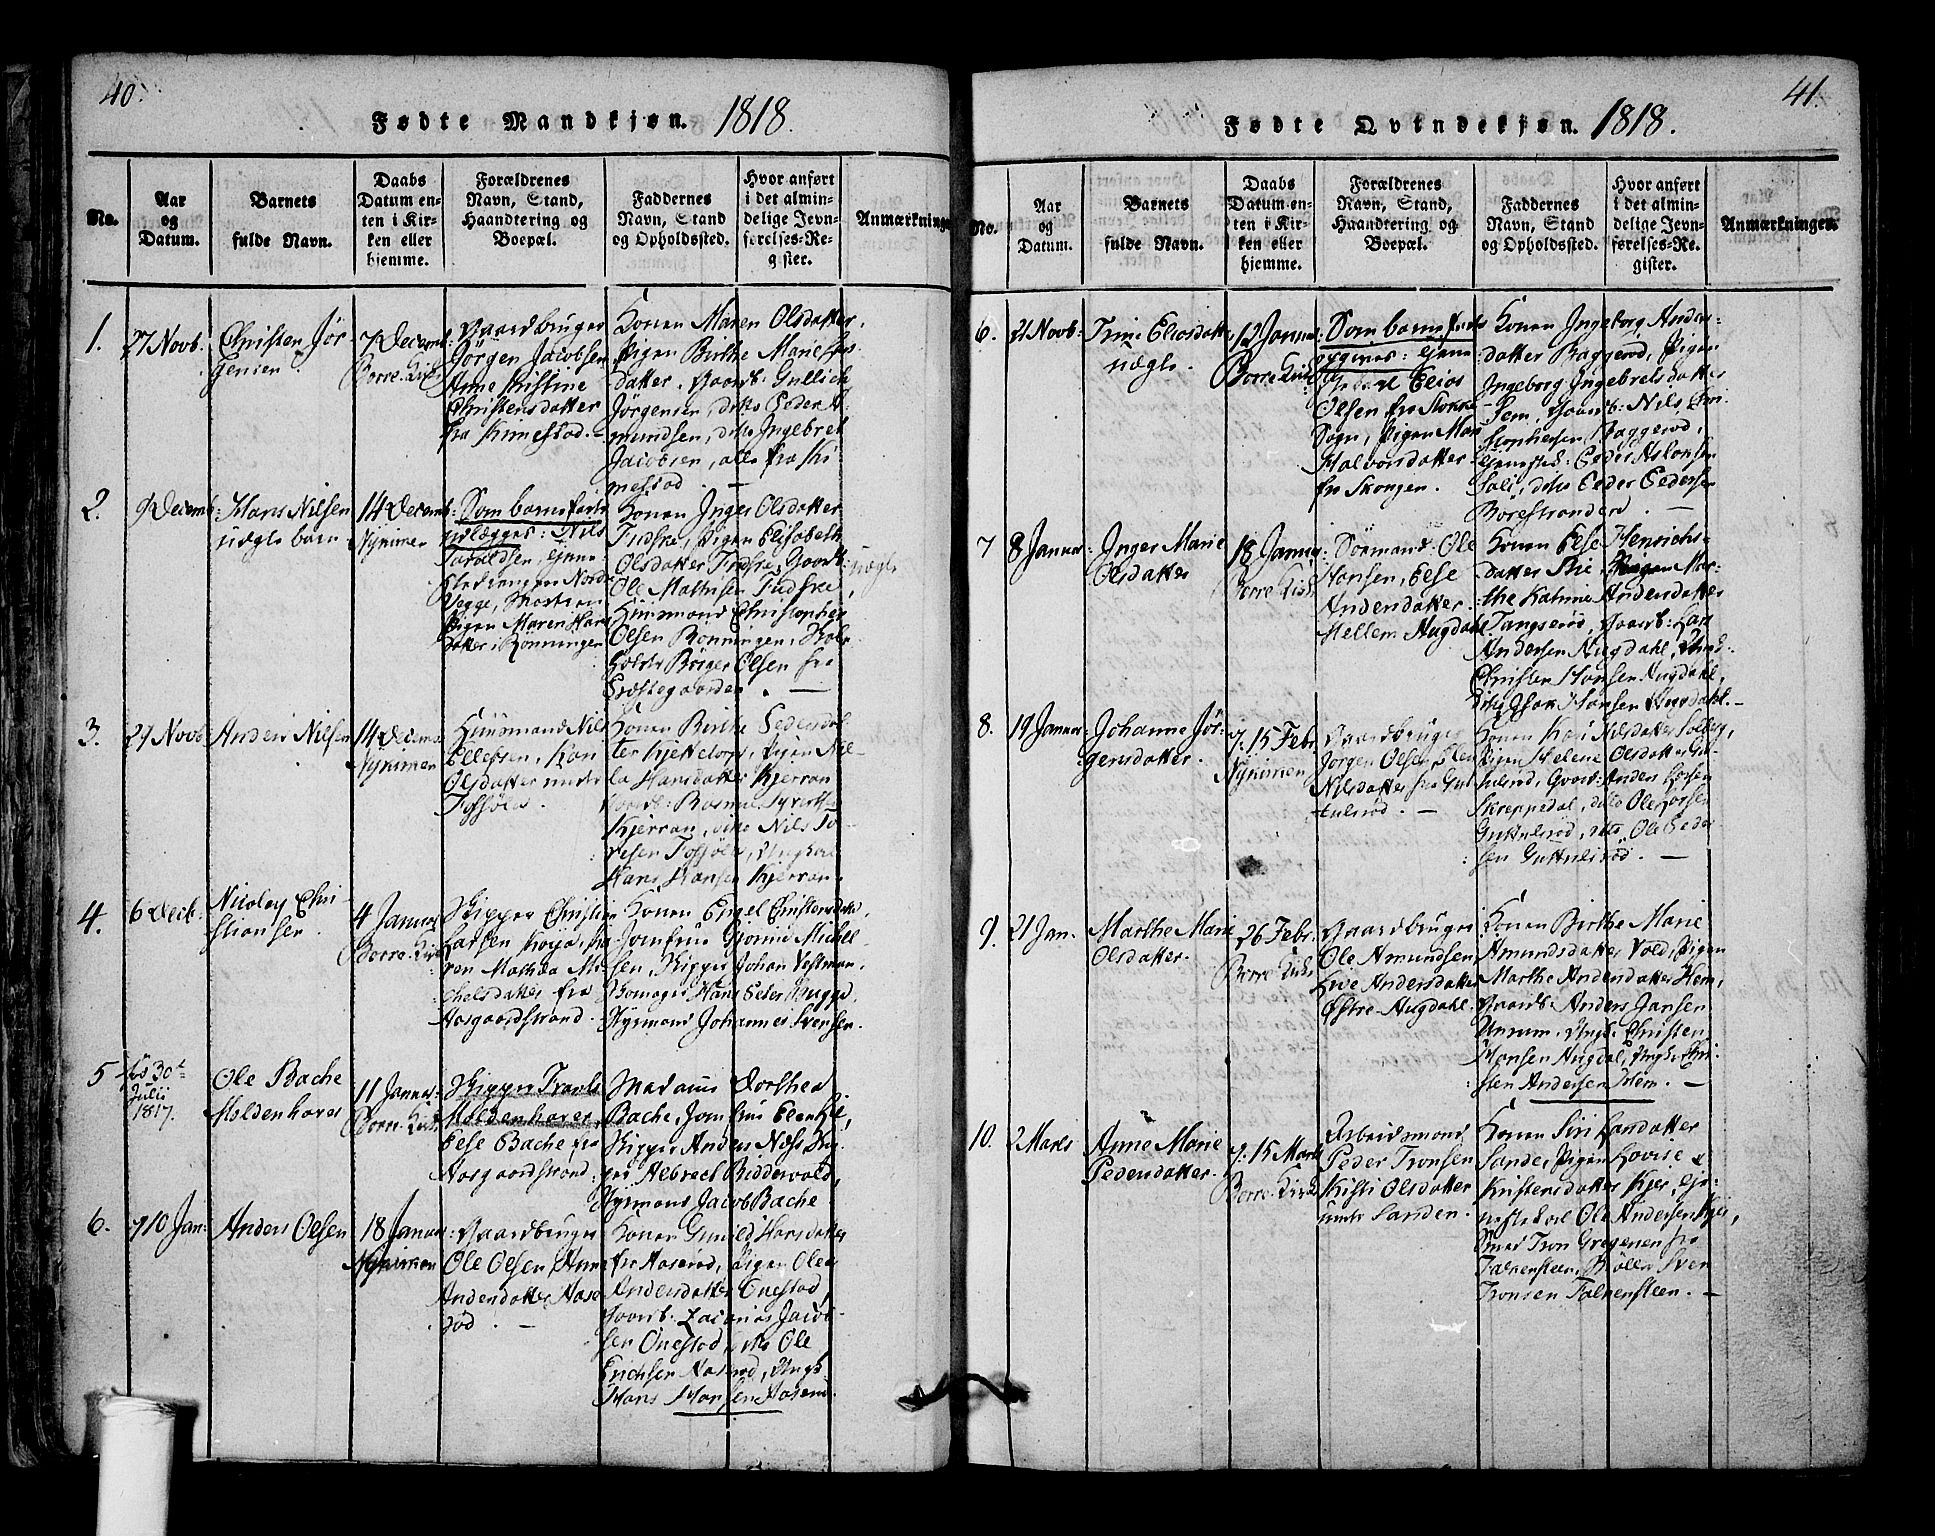 40.
Fødte Mandkjøn. 1818.
No.
Aar
og
Datum.
Barnets
fulde Navn.
Daabs
Datum en-
ten i Kir-
ken eller
hjemme.
Forældrenes
Navn, Stand,
Haandtering og
Boepæl.
Faddernes
Navn, Stand
og Opholdssted.
Hvor anført
i det almin-
delige Jevn-
førelses-Re-
gister.
Anmærkninger
1.
27 Novb.
Christen Jør-
gensen
7 Decemb:
Borre Kirke
Gaardbruger
Jørgen Jacobsen
Anne Kistine
Christensdatter
fra Kimestad.
Konen Maren Olsdatter,
Pigen Birthe Marie
datter, Gaardb: Gullich
Jørgensen, dito Peder A-
mundsen, dito Ingebret
Jacobsen, alle fra Ki-
mestad.
2.
9 Decemb:
Hans Nilsen
uægte barn
14 Decemb:
Nykirken
Som barnefader
udlægges: Nils
Taraldsen,
Vegge,
Pigen Maren Hans
datter, Rönningen
Konen Inger Olsdatter
Tudske, Pigen Elisabeth
Olsdatter Tudske, Gaardb:
Ole Mathisen Tudske,
Huusmand Christopher
Olsen Rönningen,
Börger Olsen fra
Præstegaarden.
uægte
3.
29 Novb
Anders Nilsen
14 Decemb
Nykirken
Huusmand Nils
Ellefsen, Kari
Olsdatter under
Konen Birthe Pedersdat-
ter Hiettetorp, Pigen Nil-
la Hansdatter Kjerran
Gaardb: Rasmus Syverts
Kjerran, dito Nils To-
resen, Ungkarl
Hans Hansen Kjerran.
4.
6 Decb:
Nicolay Chri-
stiansen
4 Januar
Borre Kirke
Skipper Christian
Larsen, Ka-
ren Mathea Mi-
chelsdatter fra
Aasgaardstrand.
Konen Engel Christensdat.
Jomfrue Gjorine Michel-
sen, Skipper Johan Vestman,
Skomager Hans Peter Bugge,
Styrmand Johannes Svensen.
5
30te
Julii
1817.
Ole Bache
Moldenhaver
11 Januar
Borre Kirke
Skipper Truels
Moldenhaver,
Else Bache fra
Aasgaardstrand.
Madame Dorthea
Bache, Jomfrue Elen
Skipper Anders Næss, Skip-
per Albrect Ridderwold,
Styrmand Jacob Bache
6.
10 Jan:
Anders Olsen
18 Januar
Nykirken
Gaardbruger
Ole Olsen, Anne
Andersdatter Aase-
rød.
Konen Gunild Hansdatter
fra Aaserød, Pigen Olea
Andersdatter Onestad,
Gaardb: Zacarias Jacob-
sen Onestad, dito Ole
Erichsen Aaserød, Ungk:
Hans Hansen Aaserød.
41.
Fødte Qvindekjøn. 1818.
No.
Aar
og
Datum.
Barnets
fulde Navn.
Daabs
Datum en-
ten i Kir-
ken eller
hjemme.
Forældrenes
Navn, Stand,
Haandtering og
Boepæl.
Faddernes
Navn, Stand
og Opholdssted.
Hvor anført
i det almin-
delige Jevn-
førelses-Re-
gister.
Anmærkninger.
6.
21 Novb:
Trine Eliasdatter
uægte.
12 Januar
Borre Kirke
Som barnefader
opgives:
Elias
Olsen fra Stokke
Sogn, Pigen Mari
Halvorsdatter
fra Skongen.
Konen Ingeborg Anders-
datter Baggerød, Pigen
Ingeborg Ingebretsdatter
Sem, Gaardb: Nils Chri-
stophersen Baggerød,
Peder Aslonsen
dito Peder Pedersen
Borrestranden.
7
8 Januar
Inger Marie
Olsdatter
18 Januar
Borre Kirke
Sømand: Ole
Hansen, Else
Andersdatter
Mellem Augdahl
Konen Else Henrichs-
datter, Pigen Mar-
the Katrine Andersdatter
Tangserød, Gaardb: Lars
Andersen Augdahl,
Christen Hansen Augdahl,
dito Isak Hansen Augdahl.
8.
19 Januar
Johanne Jør-
gensdatter.
15 Febr.
Nykirken
Gaardbruger
Jørgen Olsen, Elen
Nilsdatter fra Gut-
tulsrød.
Konen Kari Nilsdatter Solberg,
Pigen Helene Olsdatter Gut-
tulsrød, Gaardb: Anders Larsen
Skreppedal, dito Ole Larsen
Guttulsrød, dito Ole Peder-
sen Guttulsrød.
9.
21 Jan.
Marthe Marie
Olsdatter.
26 Febr.
Borre Kirke
Gaardbruger
Ole Amundsen
Live Andersdatter
Østre Augdahl.
Konen Birthe Marie
Amundsdatter Vold, Pigen
Marthe Andersdatter Hem,
Gaardb: Anders Jansen
Unrum, Ungk: Christen
Hansen Augdal, Ungk: Chri-
sten Andersen Hem.
10.
2 Marts
Anne Marie
Pedersdatter.
15 Marts
Borre Kirke
Arbeidsmand
Peder Tronsen
Kisti Olsdatter
under Sanden.
Konen Siri Larsdatter
Sande, Pigen Lovise
Kristensdatter Kjer,
Ole Andersen Kjer,
Smed Tron Gregersen fra
Falkensteen, Møller Sven
Tronsen Falkensteen.